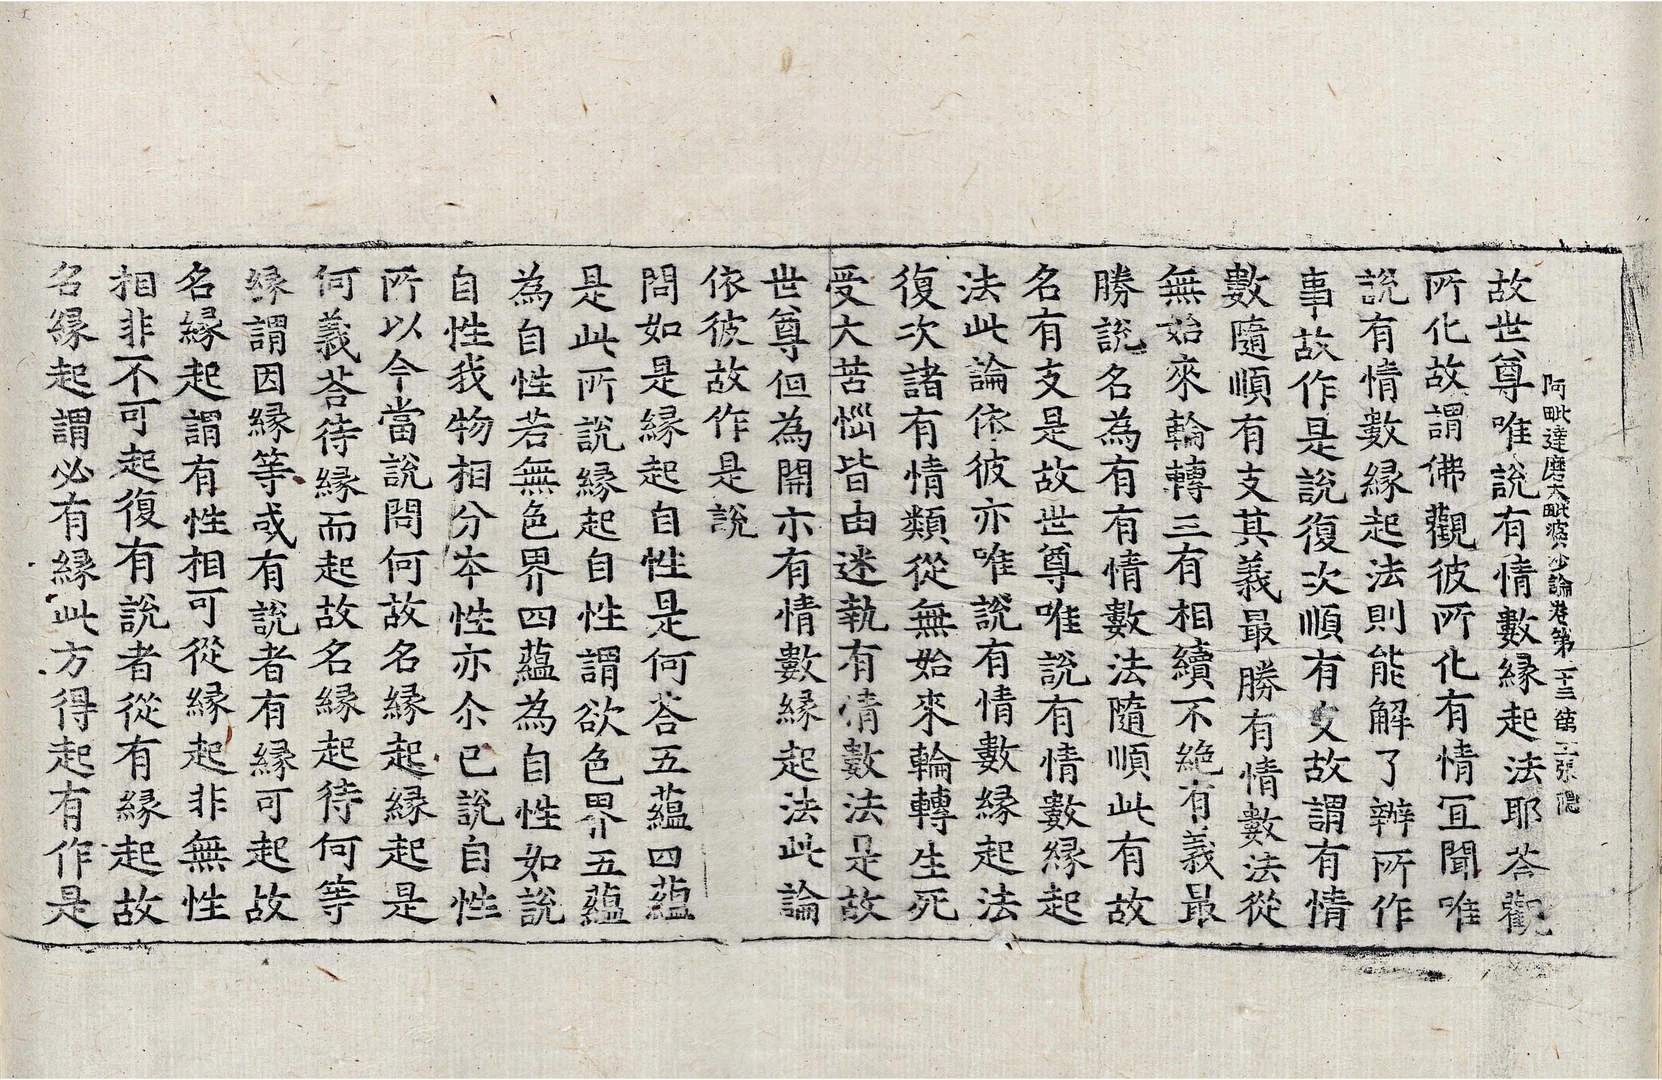 阿毗達磨大毗婆沙論卷第二十三第二張隱
故世尊唯說有情數緣起法耶荅觀
所化故謂佛觀彼所化有情冝聞唯
說有情數緣起法則能解了辦所作
事故作是說復次順有支故謂有情
數隨順有支其義最勝有情數法從
無始來輪轉三有相續不絕有義最
勝說名為有有情數法隨順此有故
名有支是故世尊唯說有情數緣起
法此論依彼亦唯說有情數緣起法
復次諸有情類從無始來輪轉生死
受大苦惱皆由迷執有情數法是故
世尊但為開示有情數緣起法此論
依彼故作是說
問如是緣起自性是何荅五蘊四蘊
是此所說緣起自性謂欲色界五蘊
為自性若無色界四蘊為自性如說
自性我物相分本性亦尒已說自性
所以今當說問何故名緣起緣起是
何義荅待緣而起故名緣起待何等
緣謂因緣等或有說者有緣可起故
名緣起謂有性相可從緣起非無性
相非不可起復有說者從有緣起故
名緣起謂必有緣此方得起有作是